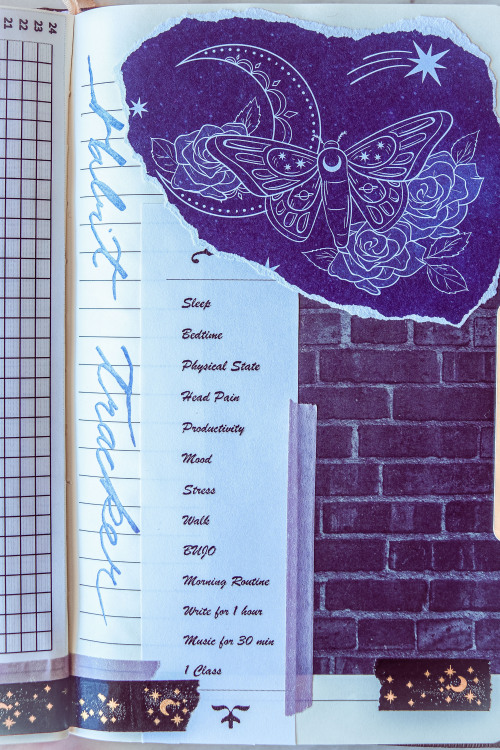 21
22
23
24
Habit Tracker
Sleep
Bedtime
Physical State
Head Pain
Productivity
Mood
Stress
Walk
BUJO
Morning Routine
Write for 1 hour
Music for 30 min
1 Class